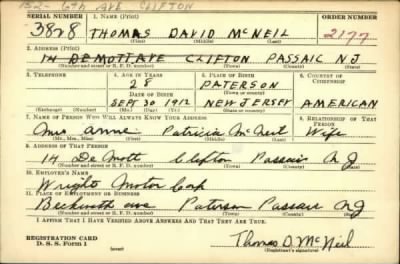 152- 6th AVE CLIFTON
SERIAL NUMBER 1. NAME (Print) ORDER NUMBER
3828 THOMAS DAVID McNEIL 2177
(First) (Middle) (Last)
2. ADDRESS (Print)
14 DEMOTT AVE CLIFTON PASSAIC NJ
(Number and street or R. F. D. number) (Town) (County) (State)
3. TELEPHONE 4. AGE IN YEARS 5. PLACE OF BIRTH 6. COUNTRY OF CITIZENSHIP
28 PATERSON
DATE OF BIRTH (Town or county)
SEPT 30 1912 NEW JERSEY AMERICAN
(Exchange) (Number) (Mo.) (Day) (Yr.) (State or country)
7. NAME OF PERSON WHO WILL ALWAYS KNOW YOUR ADDRESS 8. RELATIONSHIP OF THAT PERSON
Mrs Anne Patricia McNeil Wife
(Mr., Mrs., Miss) (First) (Middle) (Last)
9. ADDRESS OF THAT PERSON
14 DeMott Clifton Passaic NJ
(Number and street or R. F. D. number) (Town) (County) (State)
10. EMPLOYER'S NAME
Wright Motor Corp
11. PLACE OF EMPLOYMENT OR BUSINESS
Beckwith ave Paterson Passaic NJ
(Number and street or R. F. D. number) (Town) (County) (State)
I AFFIRM THAT I HAVE VERIFIED ABOVE ANSWERS AND THAT THEY ARE TRUE.
REGISTRATION CARD
D. S. S. Form 1 (over) Thomas D. McNeil
(Registrant's signature)